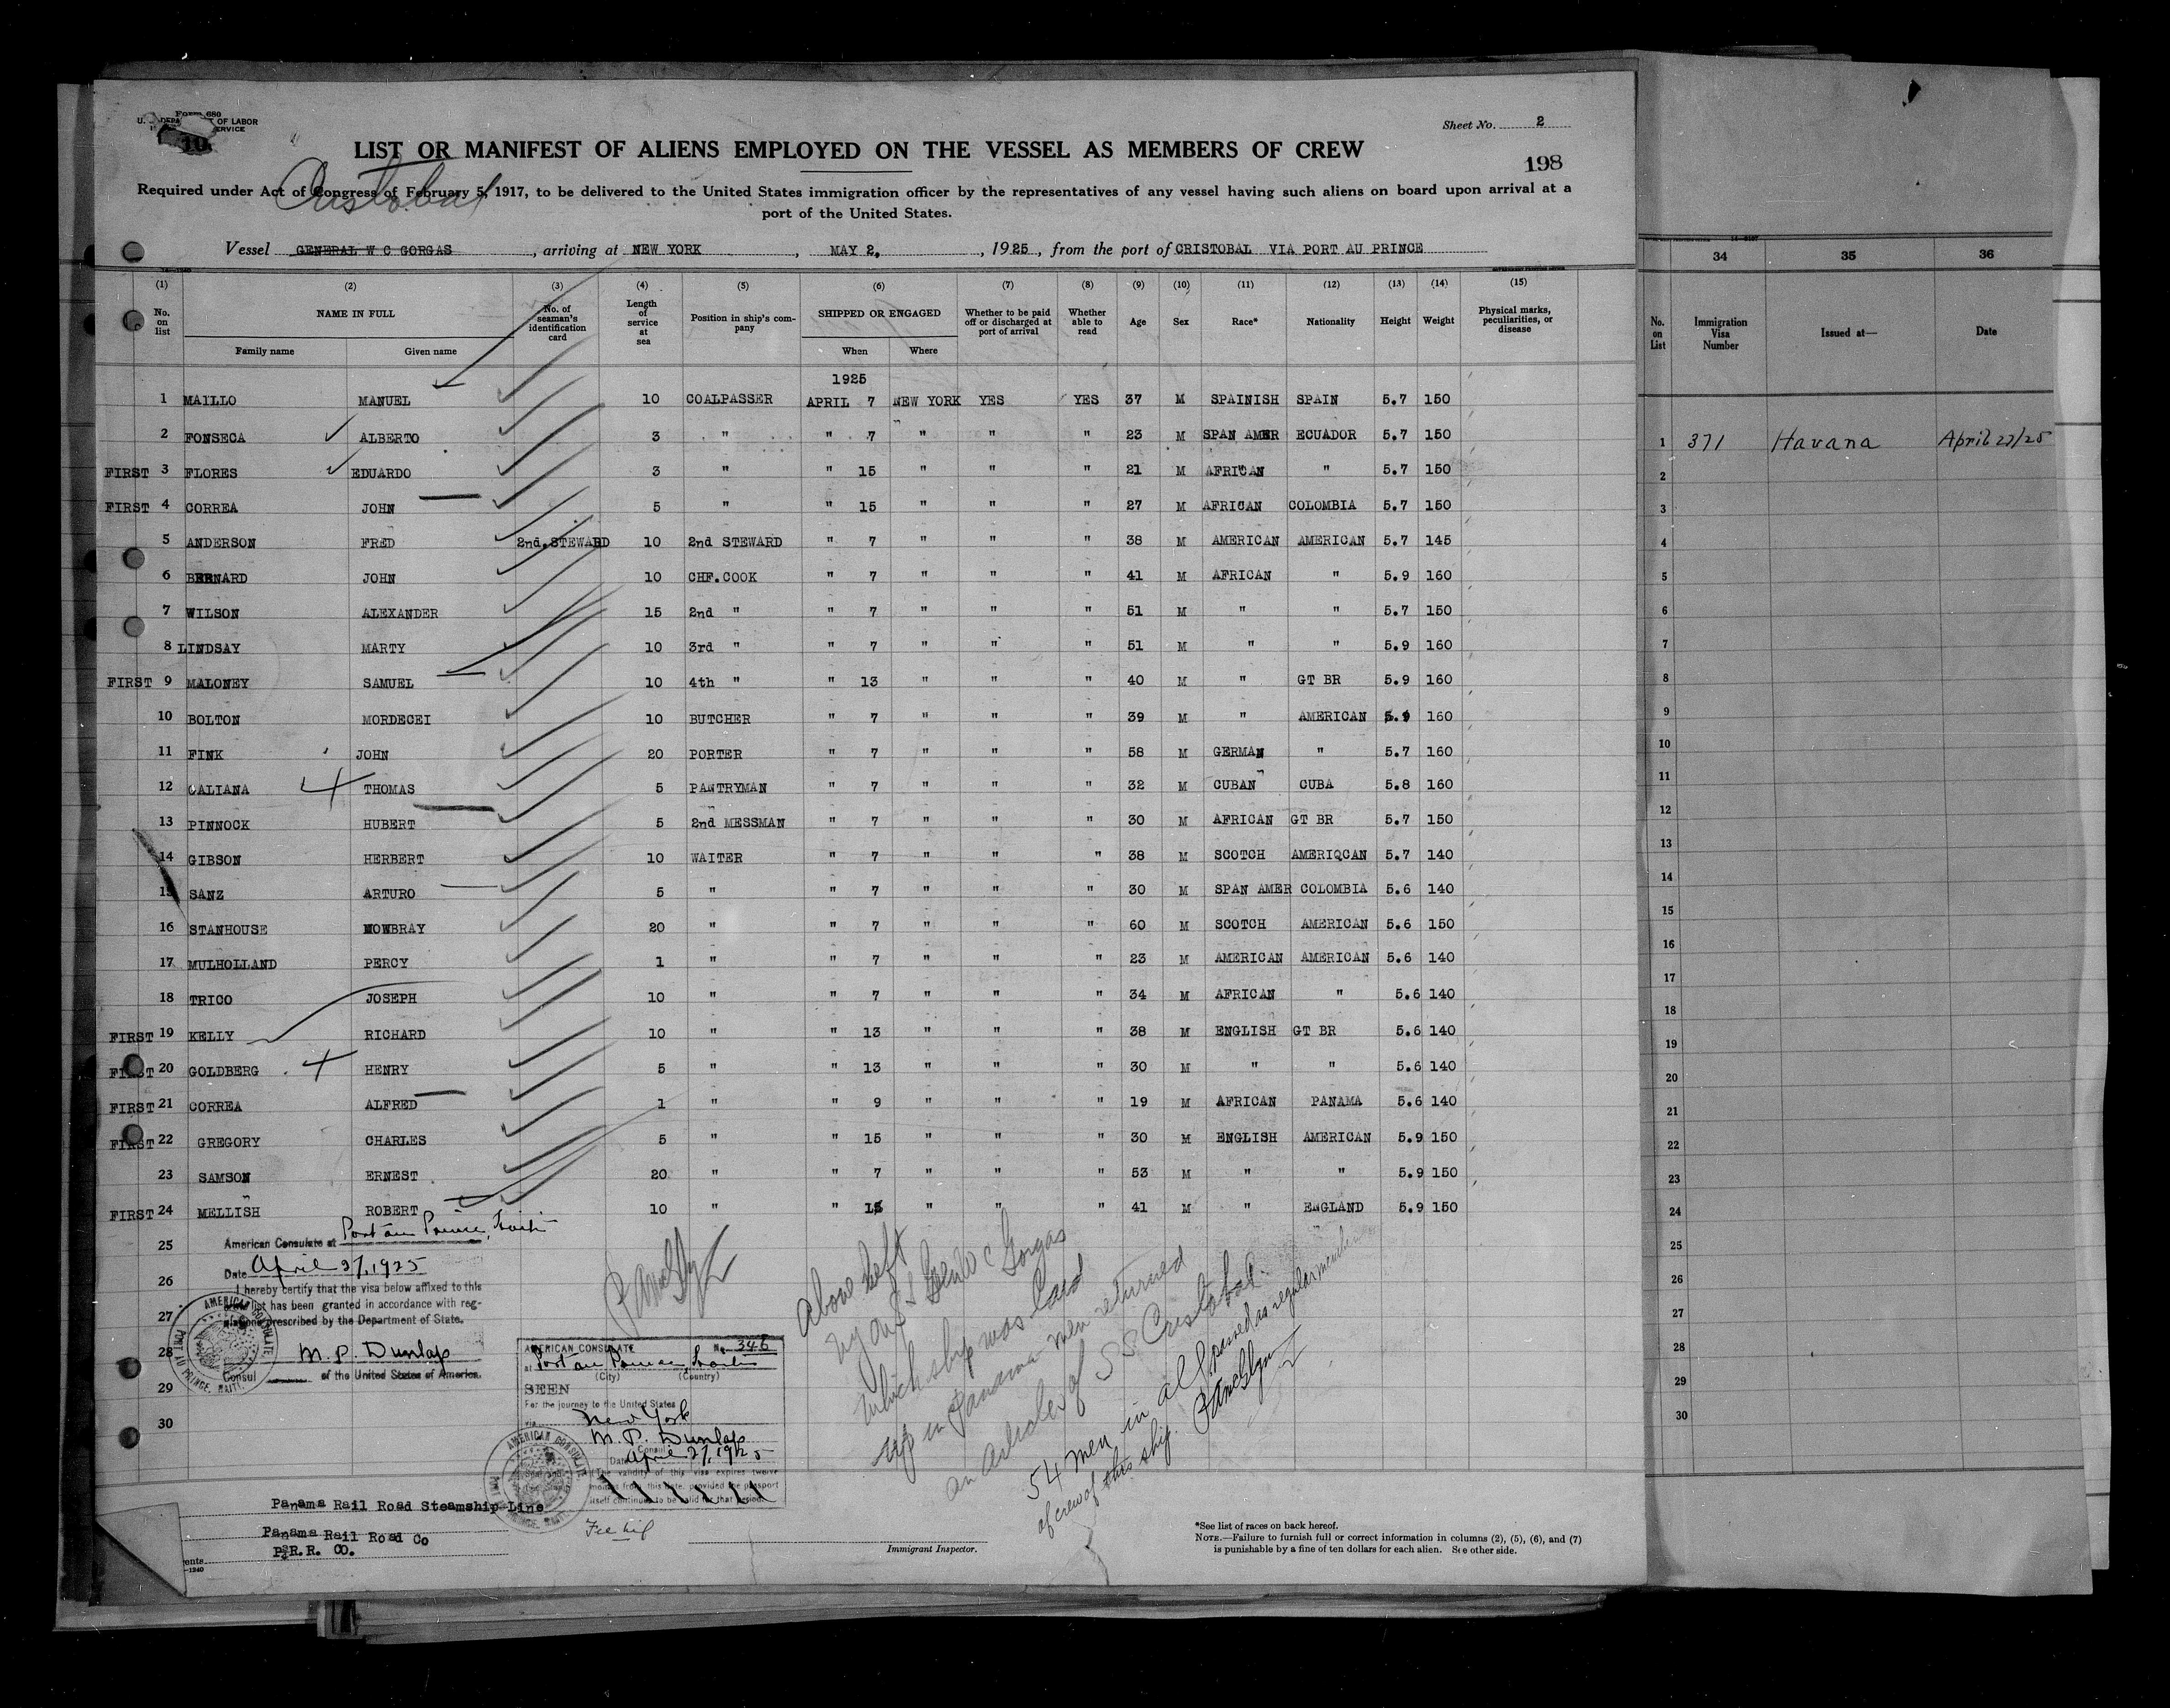 Form 680
U. S. DEPARTMENT OF LABOR
SERVICE
10
Sheet No. 2
LIST OR MANIFEST OF ALIENS EMPLOYED ON THE VESSEL AS MEMBERS OF CREW
198
Required under Act of Congress of February 5, 1917, to be delivered to the United States immigration officer by the representatives of any vessel having such aliens on board upon arrival at a
port of the United States.
Cristobal
Vessel GENERAL W C GORGAS, arriving at NEW YORK, MAY 2, 1925, from the port of CRISTOBAL VIA PORT AU PRINCE
(1) (2) (3) (4) (5) (6) (7) (8) (9) (10) (11) (12) (13) (14) (15)
No. on list NAME IN FULL No. of seaman's identification card Length of service at sea Position in ship's company SHIPPED OR ENGAGED Whether to be paid off or discharged at port of arrival Whether able to read Age Sex Race* Nationality Height Weight Physical marks, peculiarities, or disease
Family name Given name When Where
1925
1 MAILLO MANUEL 10 COALPASSER APRIL 7 NEW YORK YES YES 37 M SPAINISH SPAIN 5.7 150
2 FONSECA ALBERTO 3 " " 7 " " " 23 M SPAN AMER ECUADOR 5.7 150
FIRST 3 FLORES EDUARDO 3 " " 15 " " " 21 M AFRICAN " 5.7 150
FIRST 4 CORREA JOHN 5 " " 15 " " " 27 M AFRICAN COLOMBIA 5.7 150
5 ANDERSON FRED 2nd.STEWARD 10 2nd STEWARD " 7 " " " 38 M AMERICAN AMERICAN 5.7 145
6 BERNARD JOHN 10 CHF.COOK " 7 " " " 41 M AFRICAN " 5.9 160
7 WILSON ALEXANDER 15 2nd " " 7 " " " 51 M " " 5.7 150
8 LINDSAY MARTY 10 3rd " " 7 " " " 51 M " " 5.9 160
FIRST 9 MALONEY SAMUEL 10 4th " " 13 " " " 40 M " GT BR 5.9 160
10 BOLTON MORDECEI 10 BUTCHER " 7 " " " 39 M " AMERICAN 5.9 160
11 FINK JOHN 20 PORTER " 7 " " " 58 M GERMAN " 5.7 160
12 CALIANA THOMAS 5 PANTRYMAN " 7 " " " 32 M CUBAN CUBA 5.8 160
13 PINNOCK HUBERT 5 2nd MESSMAN " 7 " " " 30 M AFRICAN GT BR 5.7 150
14 GIBSON HERBERT 10 WAITER " 7 " " " 38 M SCOTCH AMERIQCAN 5.7 140
15 SANZ ARTURO 5 " " 7 " " " 30 M SPAN AMER COLOMBIA 5.6 140
16 STANHOUSE MOWBRAY 20 " " 7 " " " 60 M SCOTCH AMERICAN 5.6 150
17 MULHOLLAND PERCY 1 " " 7 " " " 23 M AMERICAN AMERICAN 5.6 140
18 TRICO JOSEPH 10 " " 7 " " " 34 M AFRICAN " 5.6 140
FIRST 19 KELLY RICHARD 10 " " 13 " " " 38 M ENGLISH GT BR 5.6 140
FIRST 20 GOLDBERG HENRY 5 " " 13 " " " 30 M " " 5.6 140
FIRST 21 CORREA ALFRED 1 " " 9 " " " 19 M AFRICAN PANAMA 5.6 140
FIRST 22 GREGORY CHARLES 5 " " 15 " " " 30 M ENGLISH AMERICAN 5.9 150
23 SAMSON ERNEST 20 " " 7 " " " 53 M " " 5.9 150
FIRST 24 MELLISH ROBERT 10 " " 15 " " " 41 M " ENGLAND 5.9 150
25
26
27
28
29
30
American Consulate at Port au Prince, Haiti
Date April 27, 1925
I hereby certify that the visa below affixed to this
crew list has been granted in accordance with reg-
ulations prescribed by the Department of State.
M. P. Dunlap
Consul of the United States of America.
AMERICAN CONSULATE
PORT AU PRINCE, HAITI.
AMERICAN CONSULATE No. 346
at Port au Prince, Haiti
(City) (Country)
SEEN
For the journey to the United States
via New York
M. P. Dunlap
Consul
Date April 27, 1925
(The validity of this visa expires twelve
months from this date, provided the passport
itself continues to be valid for that period.)
AMERICAN CONSULATE
Above left
N.Y. on SS Genl W C Gorgas
which ship was laid
up in Panama men returned
on Articles of SS Cristobal.
54 men in all passed as regular members
of crew of this ship.
Panama Rail Road Steamship Line
Panama Rail Road Co
P.R.R. CO.
Immigrant Inspector.
*See list of races on back hereof.
NOTE.—Failure to furnish full or correct information in columns (2), (5), (6), and (7)
is punishable by a fine of ten dollars for each alien. See other side.
34 35 36
No. on List Immigration Visa Number Issued at— Date
1 371 Havana April 27/25
2
3
4
5
6
7
8
9
10
11
12
13
14
15
16
17
18
19
20
21
22
23
24
25
26
27
28
29
30